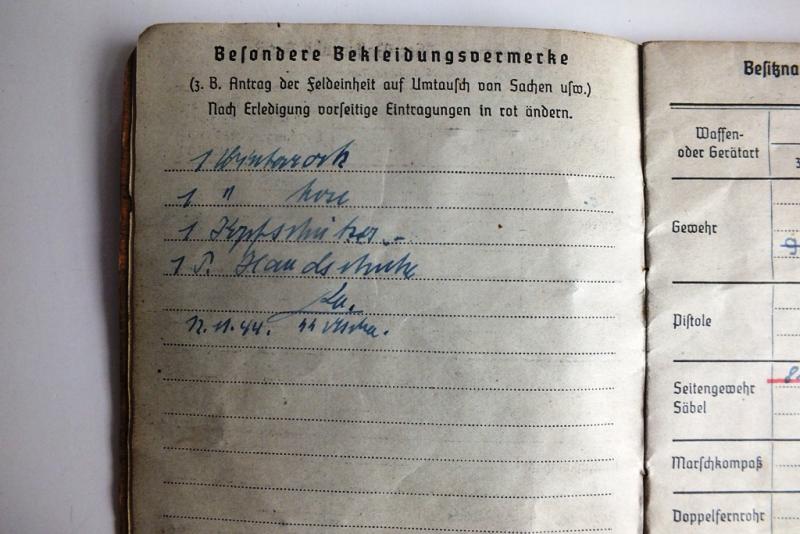 Besondere Bekleidungsvermerke
(z. B. Antrag der Feldeinheit auf Umtausch von Sachen usw.)
Nach Erledigung vorseitige Eintragungen in rot ändern.
1 Winterrock
1 " hose
1 Kopfschützer.-
1 P. Handschuhe
12.11.44.
Besitzna
Waffen-
oder Gerätart
Gewehr
Pistole
Seitengewehr
Säbel
Marschkompaß
Doppelfernrohr